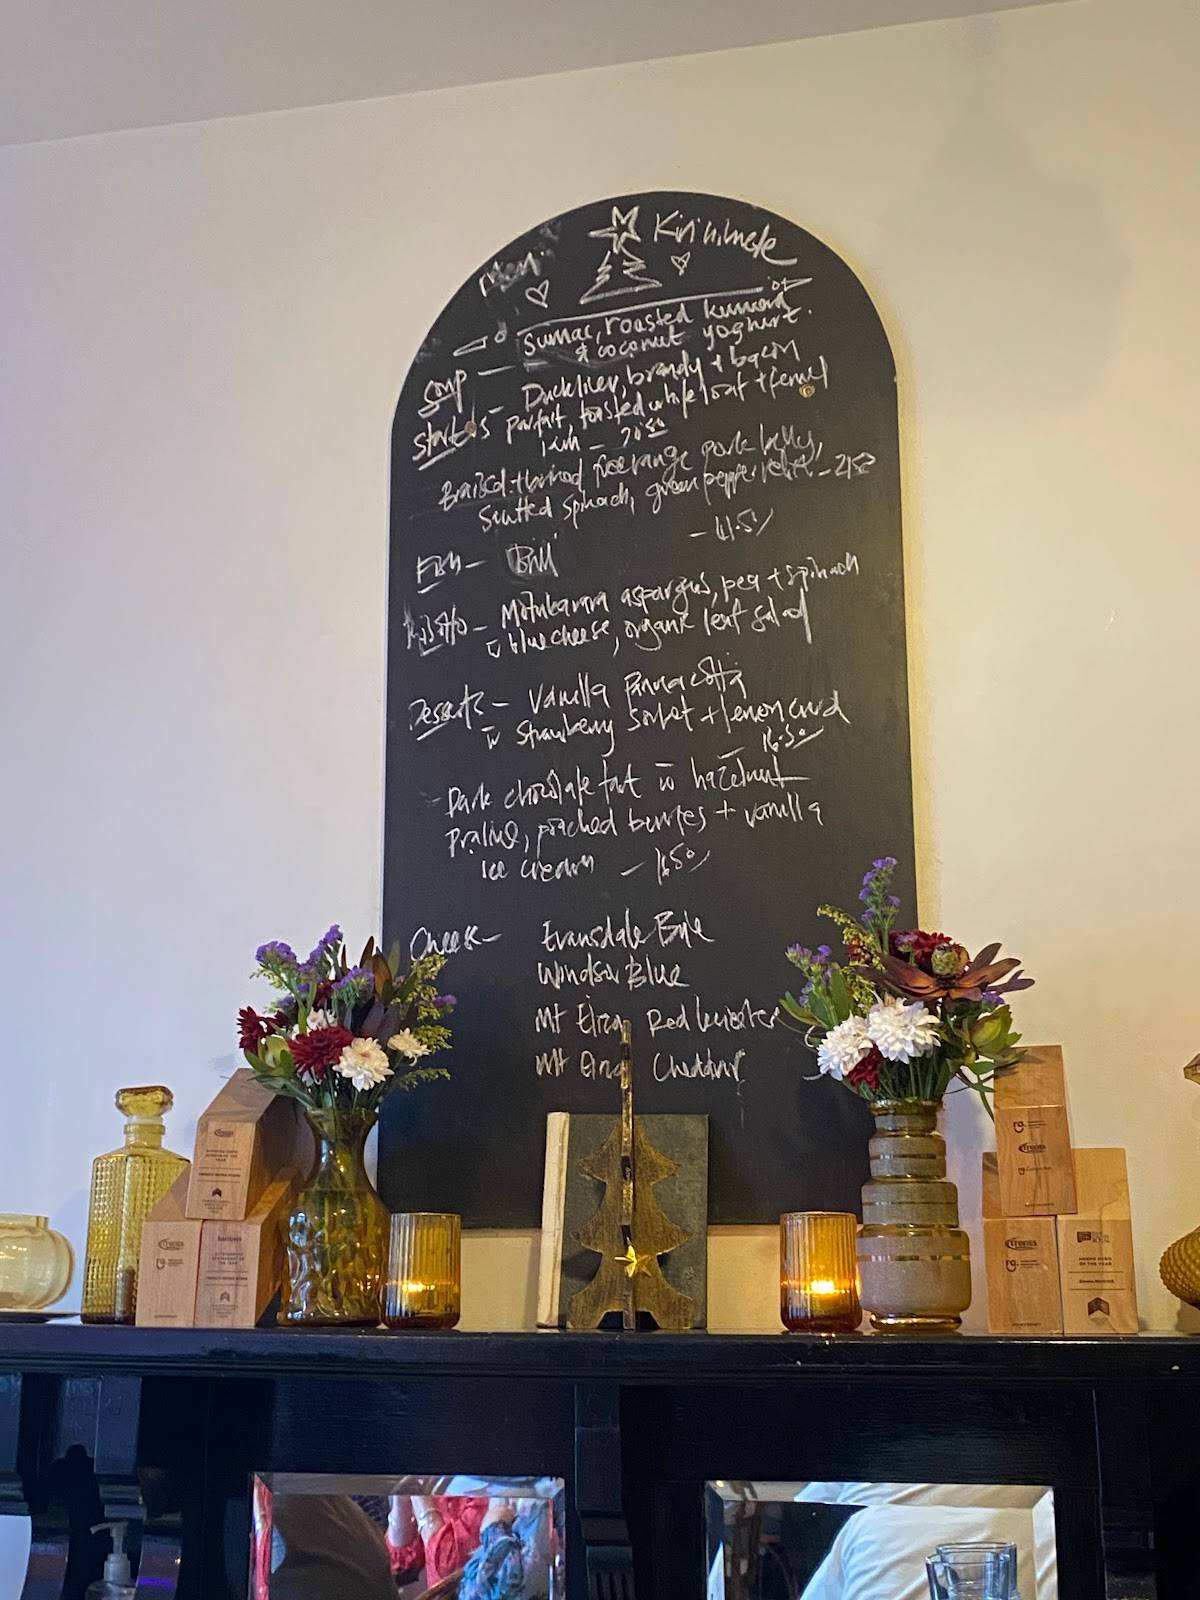 Meri Kirihimete
Soup — Sumac, roasted kumara
& coconut yoghurt.
Starters — Duckliver, brandy + bacon
parfait, toasted white loaf + fennel
— 20.50
Braised + brined freerange pork belly,
Sautted spinach, green pepper relish — 21.50
Fish — Brill — 41.5/
Risotto — Motukarara aspargus, pea + spinach
w bluecheese, organic leaf salad
Desserts — Vanilla Pannacotta
w strawberry sorbet + lemon curd
— 16.50
- Dark chocolate tart w hazelnut
praline, poached berries + vanilla
ice cream — 16.50
Cheese — Evansdale Brie
Windsor Blue
Mt Eliza Red Leicester
Mt Eliza Cheddar